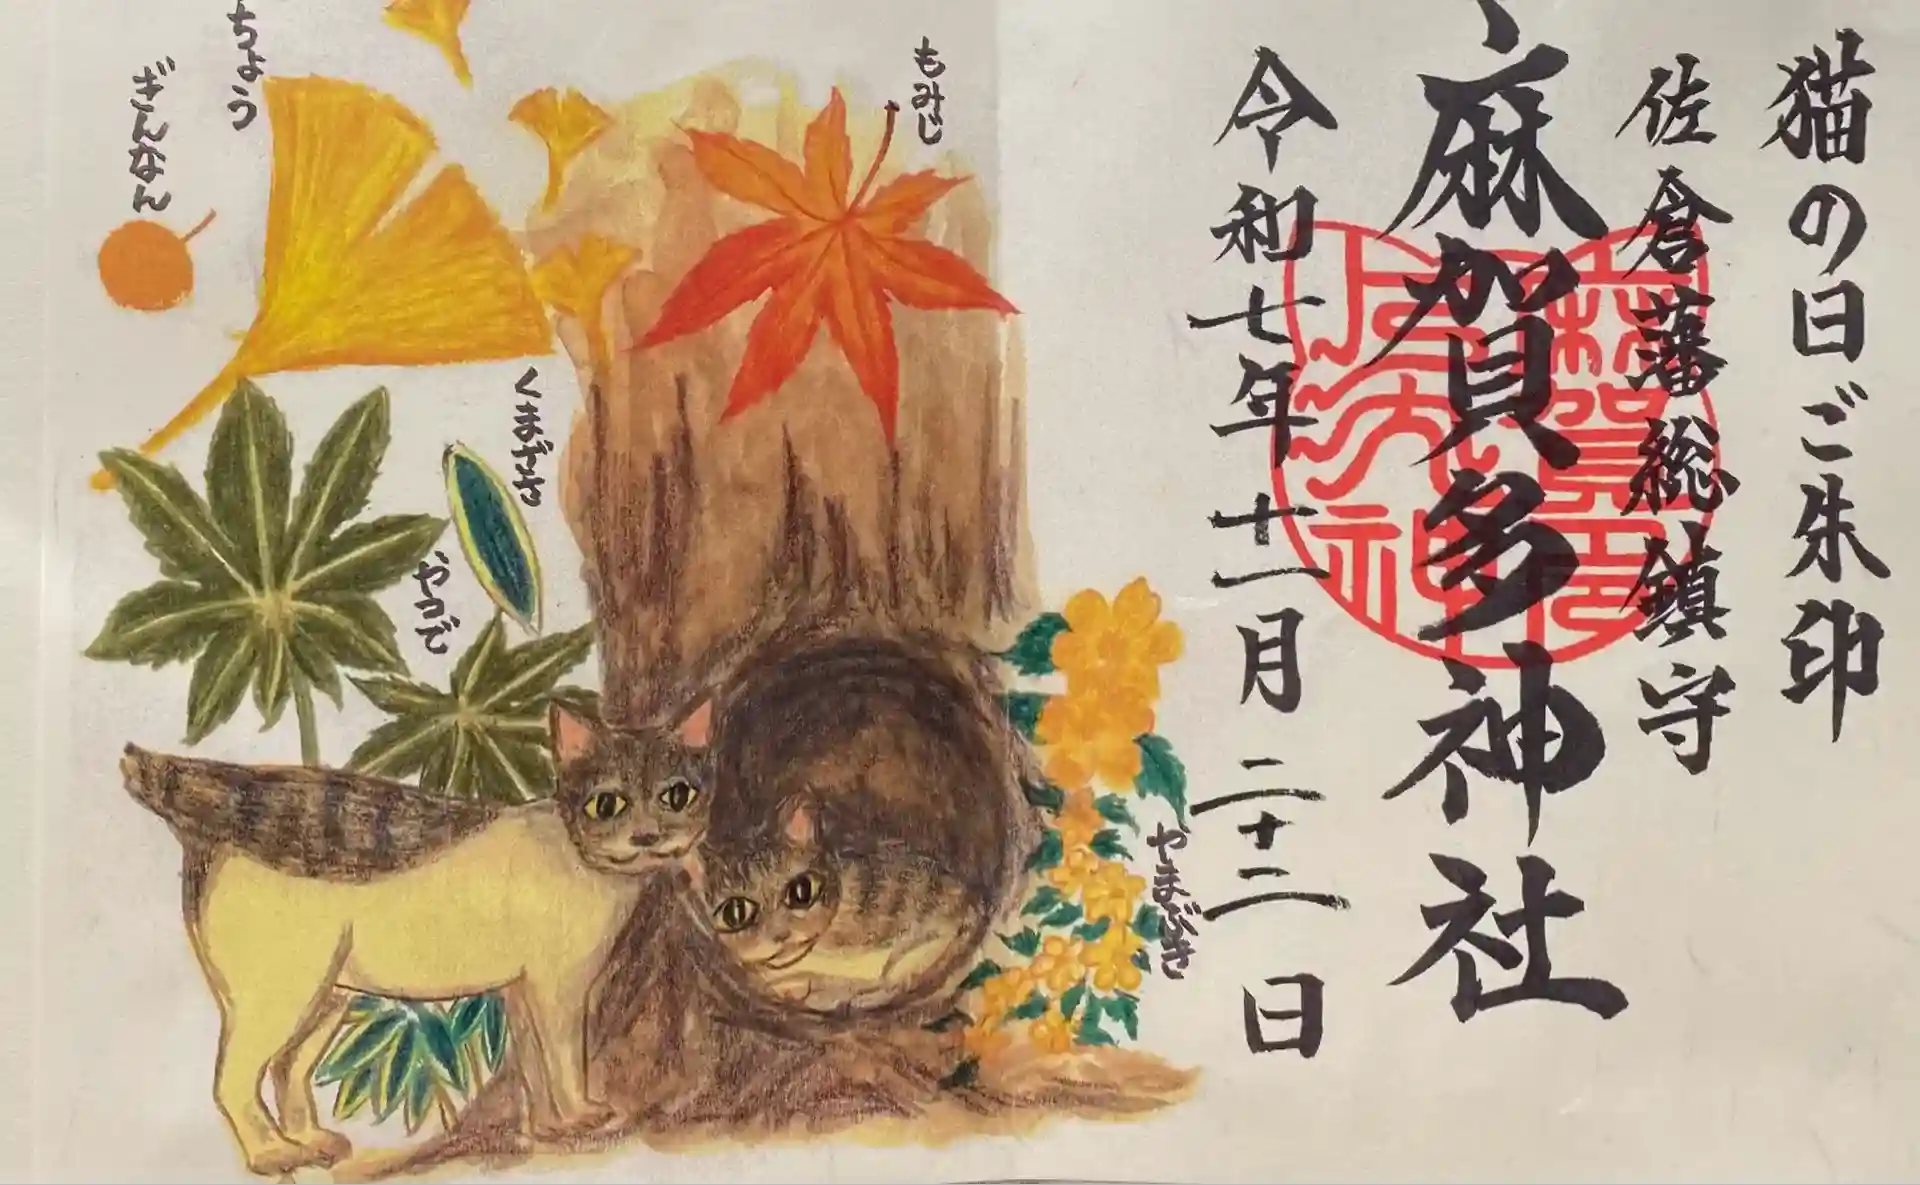 猫の日ご朱印
佐倉藩総鎮守
麻賀多神社
令和七年十一月二十二日
もみじ
ちょう
ぎんなん
くまざさ
やつで
やまぶき